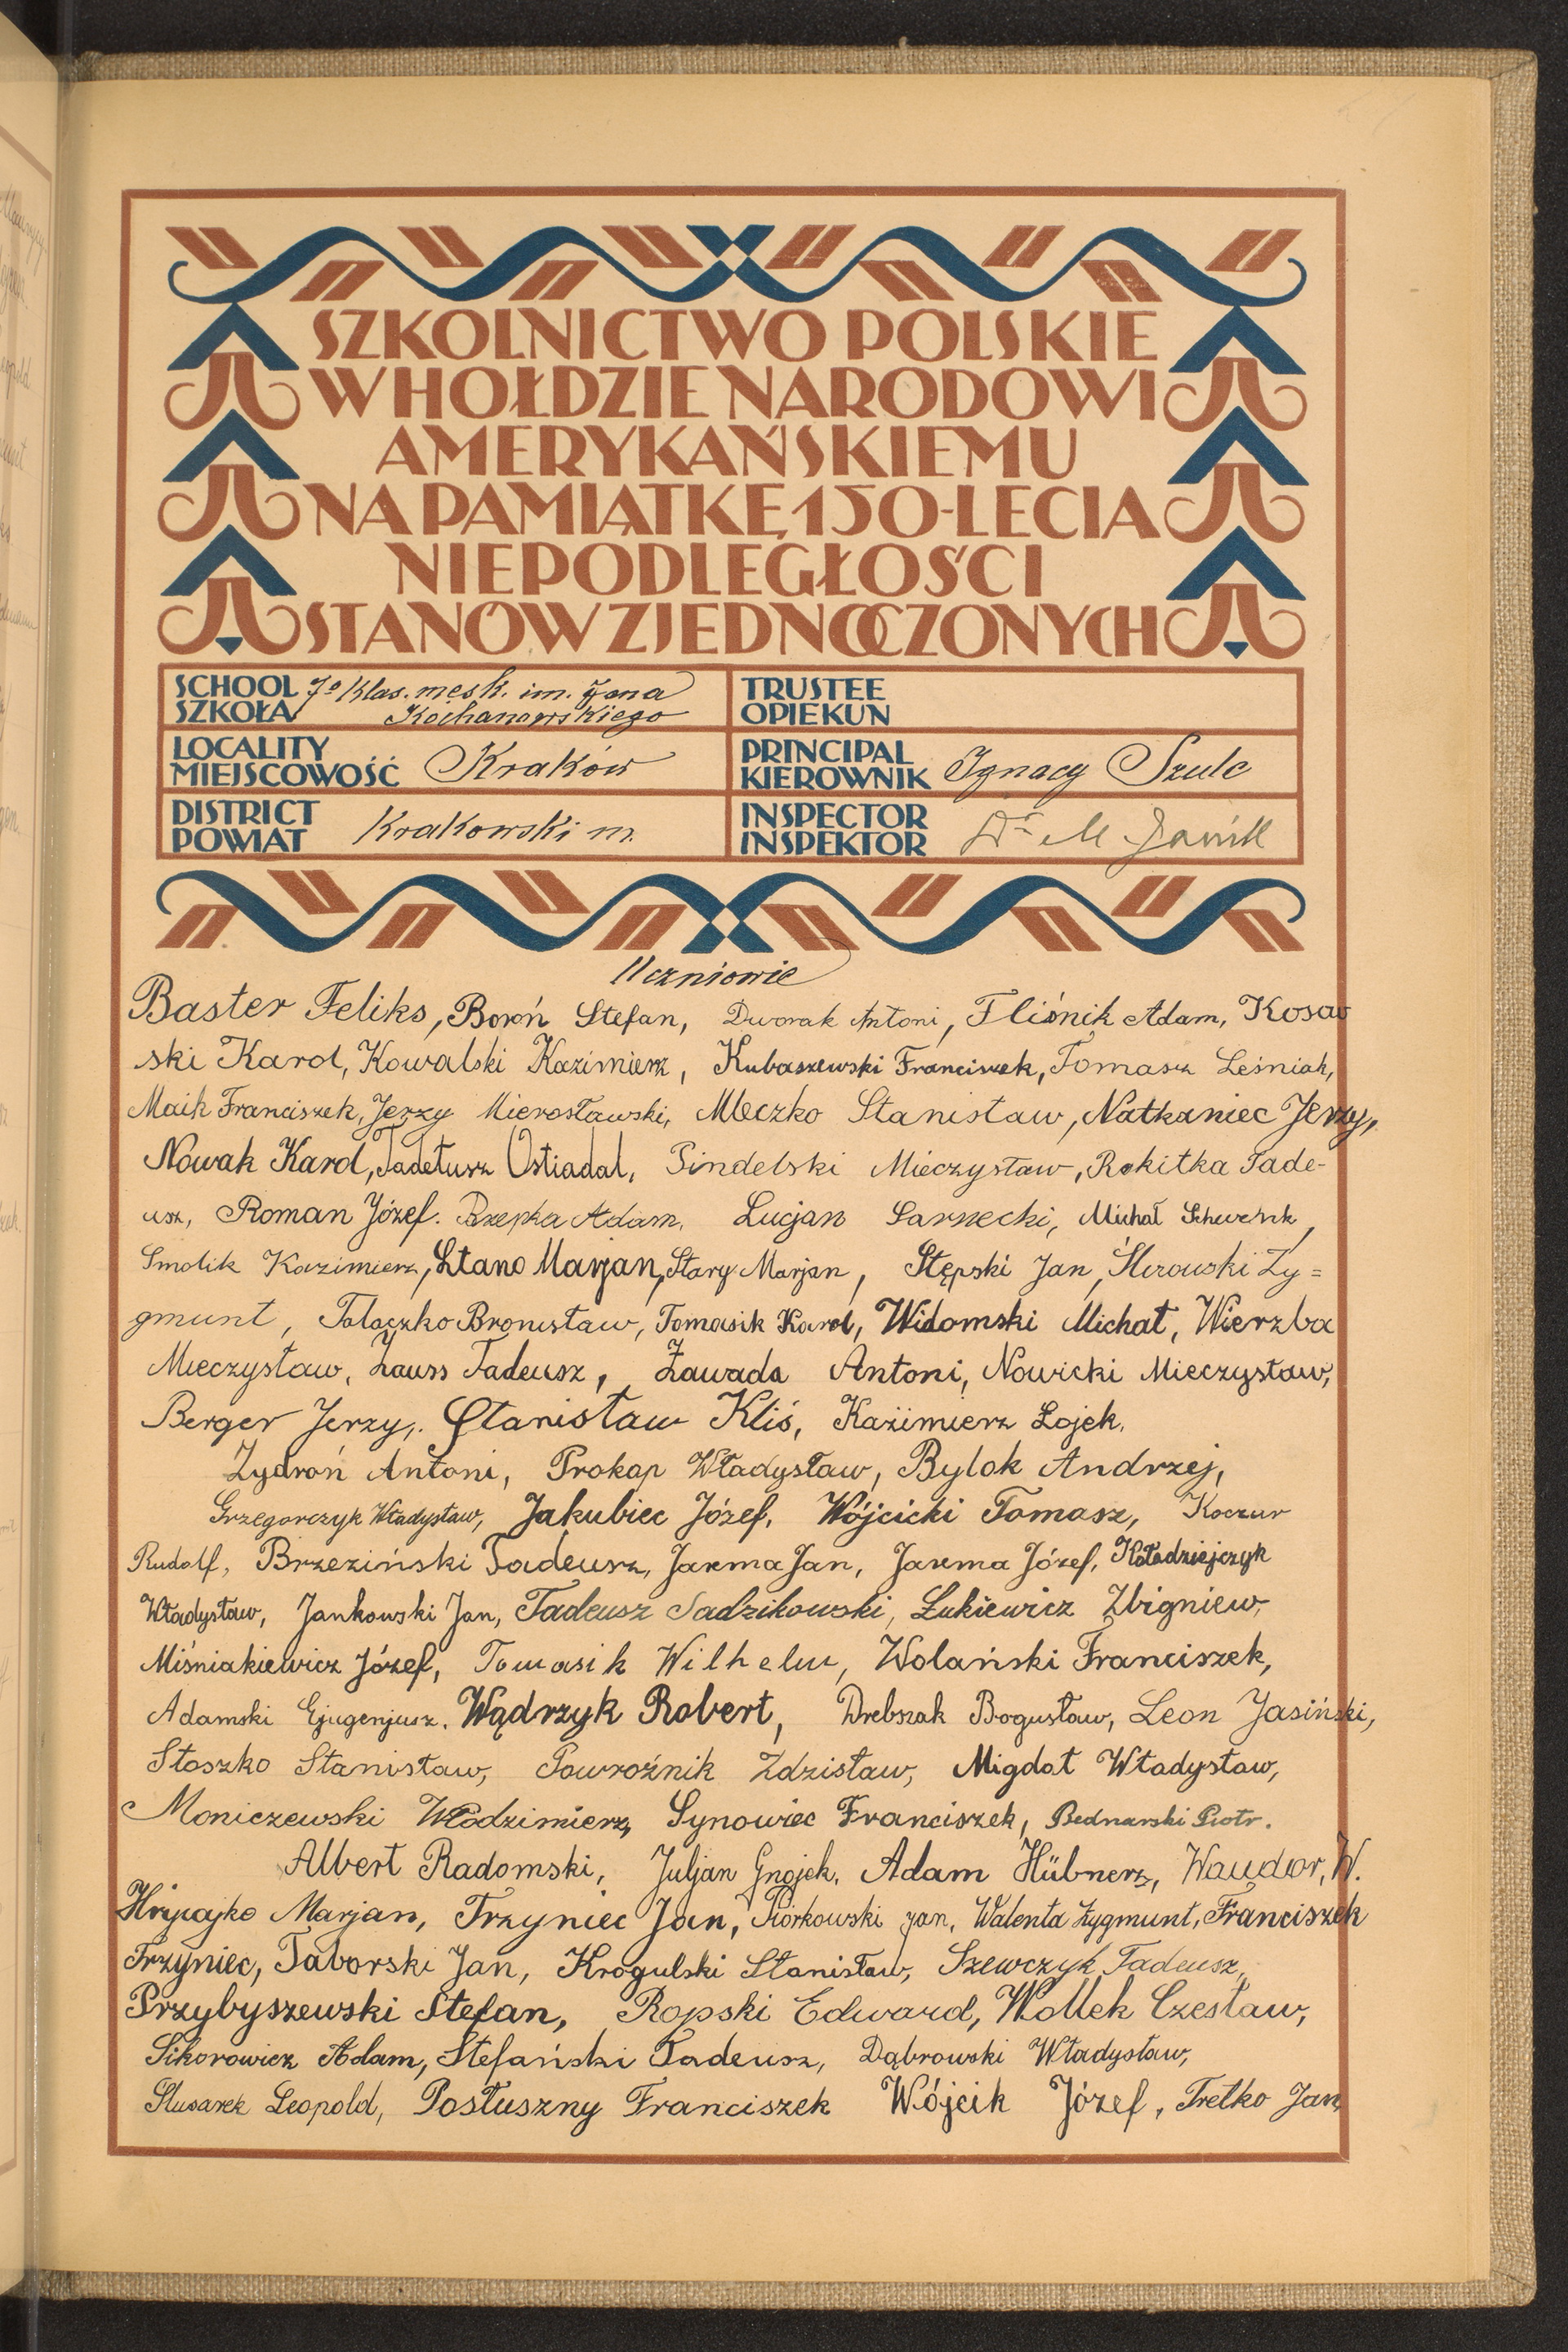 SZKOLNICTWO POLSKIE
W HOŁDZIE NARODOWI
AMERYKAŃSKIEMU
NA PAMIĄTKĘ 150-LECIA
NIEPODLEGŁOŚCI
STANÓW ZJEDNOCZONYCH
SCHOOL SZKOŁA 7º Klas. męsk. im. Jana Kochanowskiego
TRUSTEE OPIEKUN
LOCALITY MIEJSCOWOŚĆ Kraków
PRINCIPAL KIEROWNIK Ignacy Szulc
DISTRICT POWIAT Krakowski m.
INSPECTOR INSPEKTOR Dr M Janik
Uczniowie
Baster Feliks, Boroń Stefan, Dworak Antoni, Fliśnik Adam, Kosow
ski Karol, Kowalski Kazimierz, Kubaszewski Franciszek, Tomasz Leśniak,
Maik Franciszek, Jerzy Mierosławski, Mleczko Stanisław, Natkaniec Jerzy,
Nowak Karol, Tadeusz Ostiadal, Pindelski Mieczysław, Rokitka Tade-
usz, Roman Józef. Rzepka Adam, Lucjan Sarnecki, Michał
Smolik Kazimierz, Stano Marjan, Stary Marjan, Stępski Jan, Zy=
gmunt, Tołaczko Bronisław, Tomasik Karol, Widomski Michał, Wierzba
Mieczysław, Zauss Tadeusz, Zawada Antoni, Nowicki Mieczysław,
Berger Jerzy, Stanisław Kliś, Kazimierz Łojek.
Zydroń Antoni, Prokop Władysław, Bylok Andrzej,
Grzegorczyk Władysław, Jakubiec Józef, Wójcicki Tomasz, Koczur
Rudolf, Brzeziński Tadeusz, Jarema Jan, Jarema Józef, Kołodziejczyk
Władysław, Jankowski Jan, Tadeusz Sadzikowski, Łukiewicz Zbigniew,
Miśniakiewicz Józef, Tomasik Wilhelm, Wolański Franciszek,
Adamski Ejugenjusz, Wądrzyk Robert, Drebszak Bogusław, Leon Jasiński,
Stoszko Stanisław, Powroźnik Zdzisław, Migdał Władysław,
Moniczewski Włodzimierz, Synowiec Franciszek, Bednarski Piotr.
Albert Radomski, Juljan Gnojek, Adam Hübnerz, Waudor, W.
Marjan, Trzyniec Jan, Piórkowski Jan, Walenta Zygmunt, Franciszek
Trzyniec, Taborski Jan, Krogulski Stanisław, Szewczyk Tadeusz,
Przybyszewski Stefan, Ropski Edward, Wollek Czesław,
Sikorowicz Adam, Stefański Tadeusz, Dąbrowski Władysław,
Ślusarek Leopold, Posłuszny Franciszek Wójcik Józef, Tretko Jan,